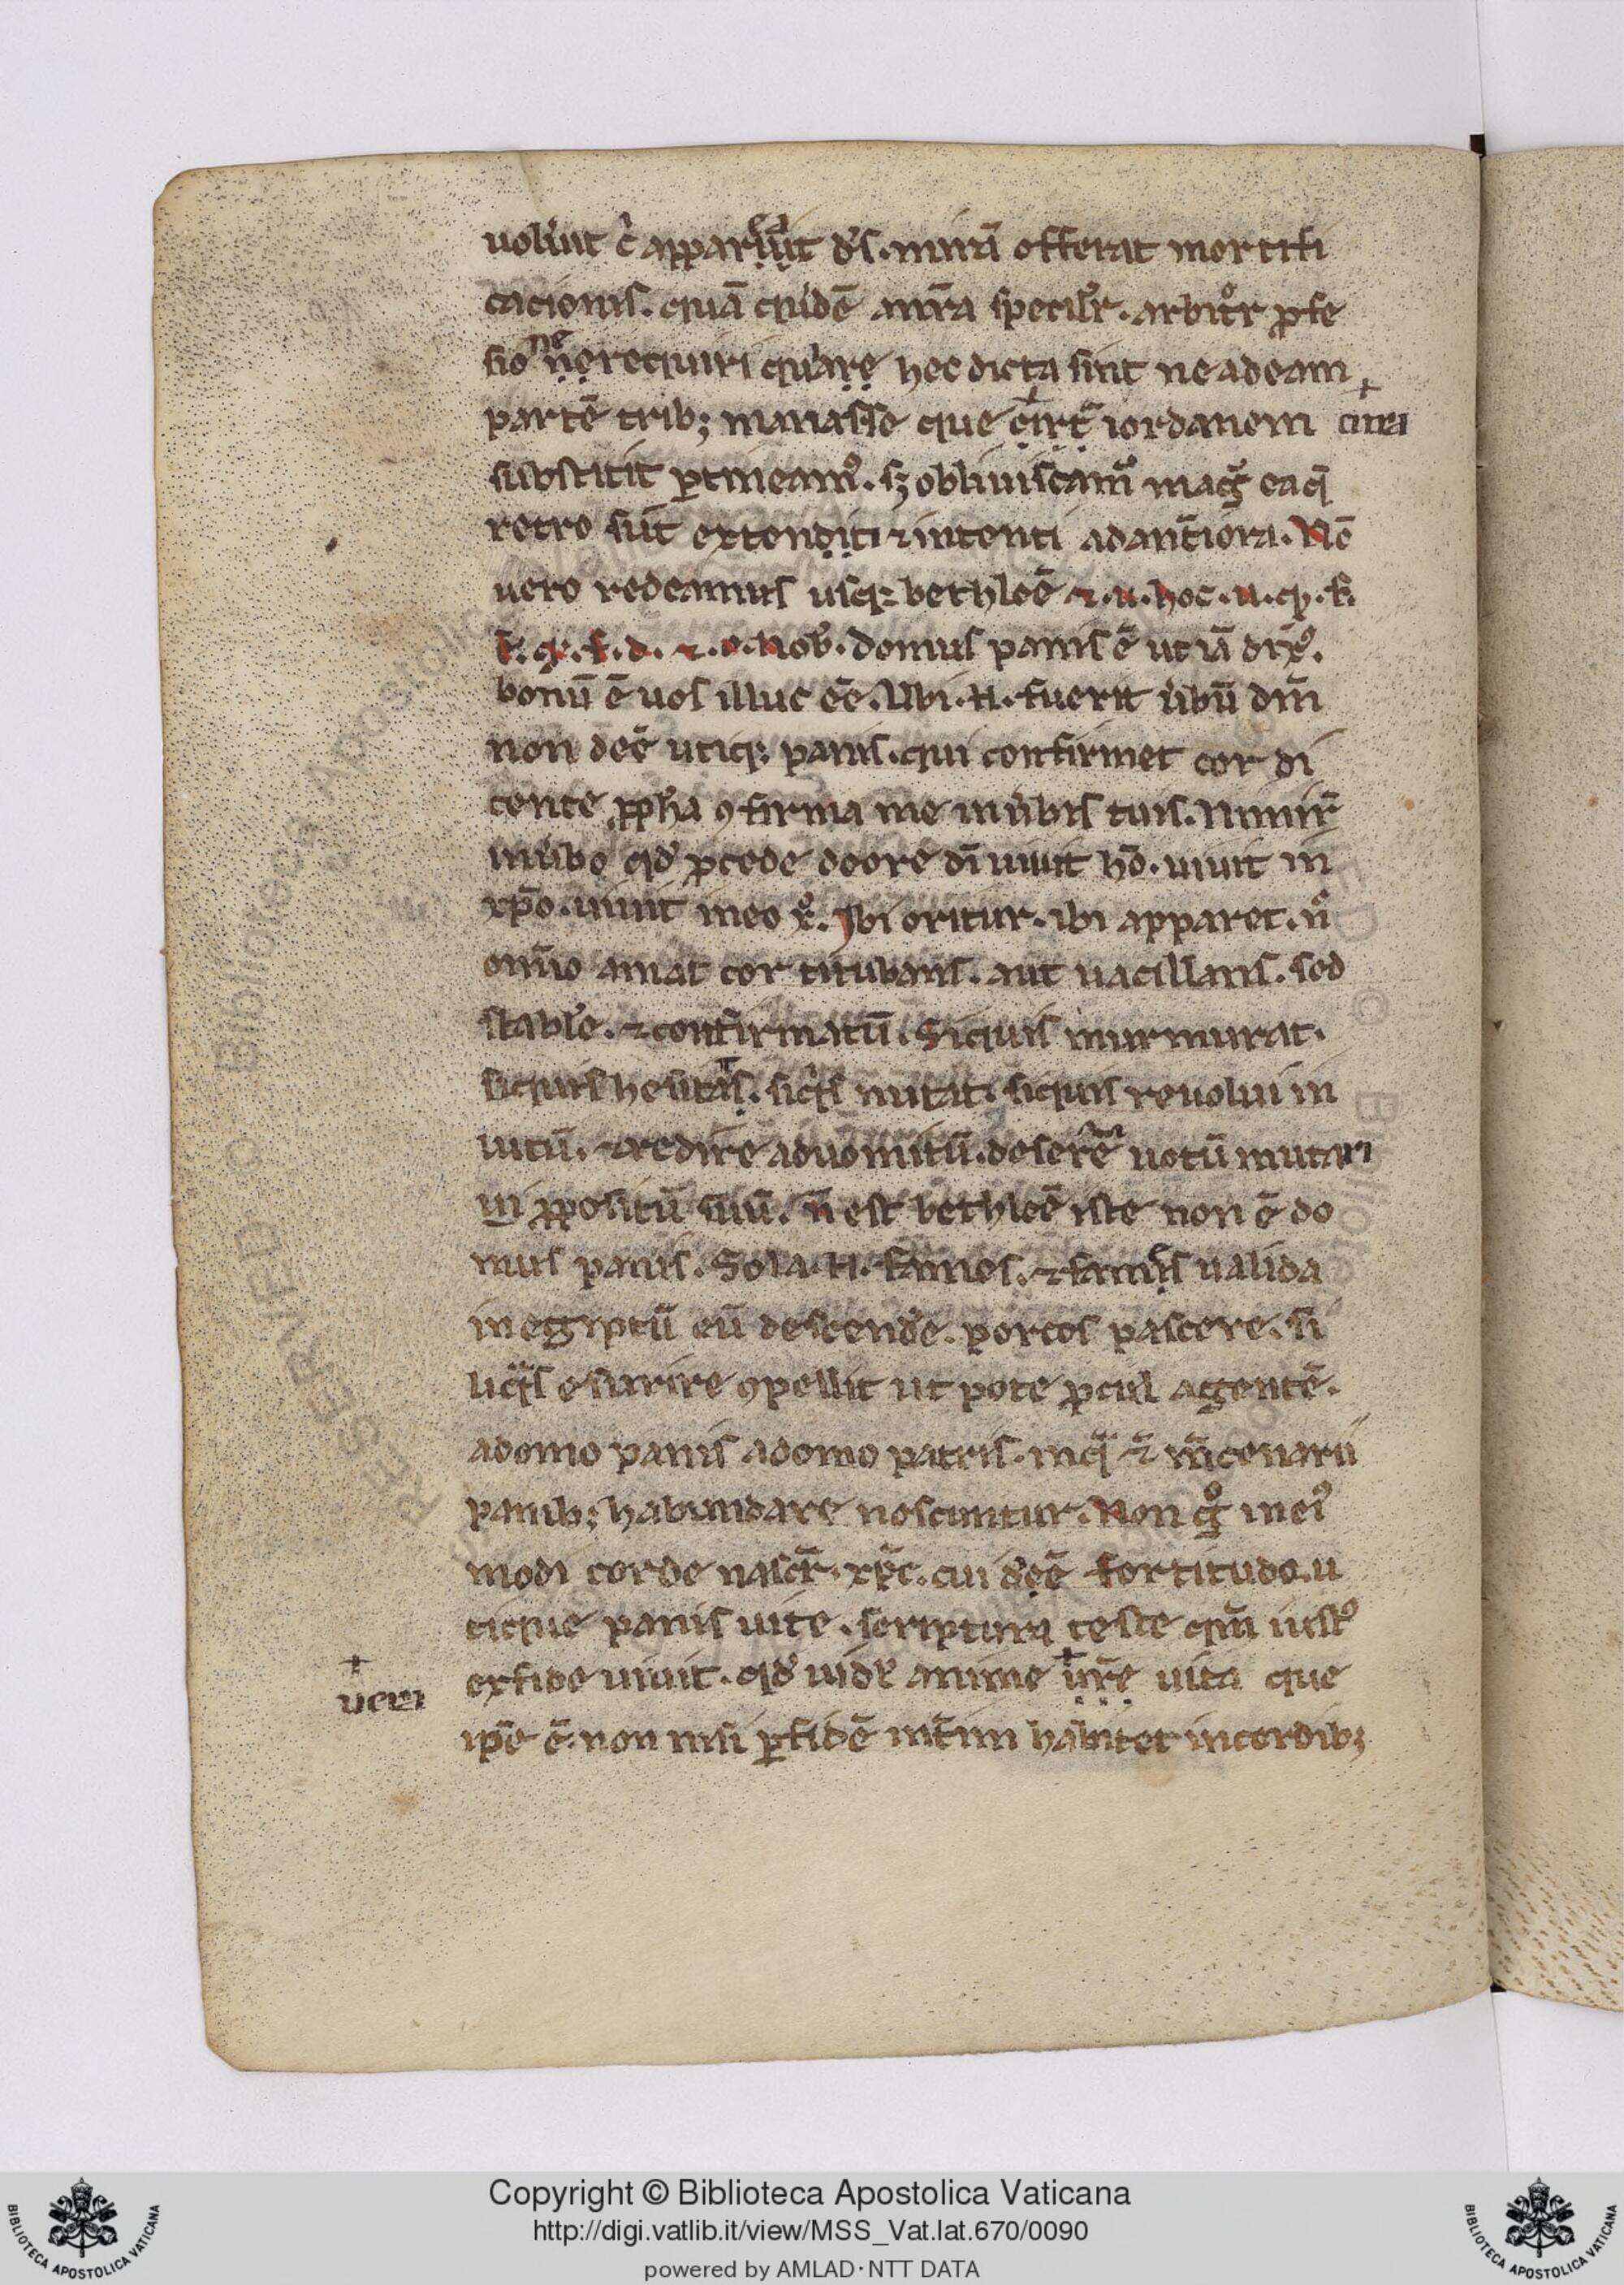 uolũnt c̉ apparuit ds̉. mirrã offerat mortifi
cacionis. quã quidẽ a nr̃a specilr̉. arbitͦr ꝓfe
sionẽ requiri quare hec dicta sint ne ad eam
partẽ tribꝫ manasse que cirt̃ iordanem citra
substitit ꝑtineamꝰ. sꝫ obliuiscam̃ magͥ ea q̃
retro sũt extenditi ⁊ intenti ad anteriora. Nc̃
uero redeamus usqꝫ bethleẽ ⁊. u. hoc. u. q. f.
f. q. f. d. ⁊. o. nob̉. domus panis ẽ ut iã dixꝰ̃.
bonũ ẽ uos illuc eẽ. Ubi. n. fuerit ũbũ dñi
non deẽ utiqꝫ panis. qui confirmet cor di
cente ꝓph̃a ꝯfirma me in ũbis tuis. Nimir̃
in ũbo qd̉ ꝓcede de ore dĩ uiuit hõ. uiuit in
xp̃o. uiuit in eo x̉. Ibi oritur. ibi apparet. nͦ
om̃o amat cor titubans. aut uacillans. sed
stabl̉e. ⁊ confirmatũ. Siquis murmurat.
siquis hesitat. siqͥs nutat. siquis reuolui in
lutũ. ⁊ redire ad uomitũ. deserẽ uotũ mutari
in ꝓpositũ suũ. ñ est bethleẽ iste non ẽ do
mus panis. Sola. n. fames. ⁊ fames ualida
in egiptũ eũ descende̕. porcos pascere. si
liqͣs esurire ꝯpellit ut pote ꝓcul agentẽ.
a domo panis a domo patris. in qͣ ⁊̃ m̃cenarii
panibꝫ habundare noscuntur. Non gͦ in eiꝰ
modi corde nascr̃. xp̃c. cui deẽ fortitudo. u
tique panis uite. scriptura teste qm̃ iustꝰ
ex fide uiuit. qd̉ uidr̉ anime ur̃e uita que
† uera
ip̃e ẽ. non nisi ꝑ fidẽ int̃im habitet in cordibꝫ
Copyright © Biblioteca Apostolica Vaticana
http://digi.vatlib.it/view/MSS_Vat.lat.670/0090
powered by AMLAD·NTT DATA